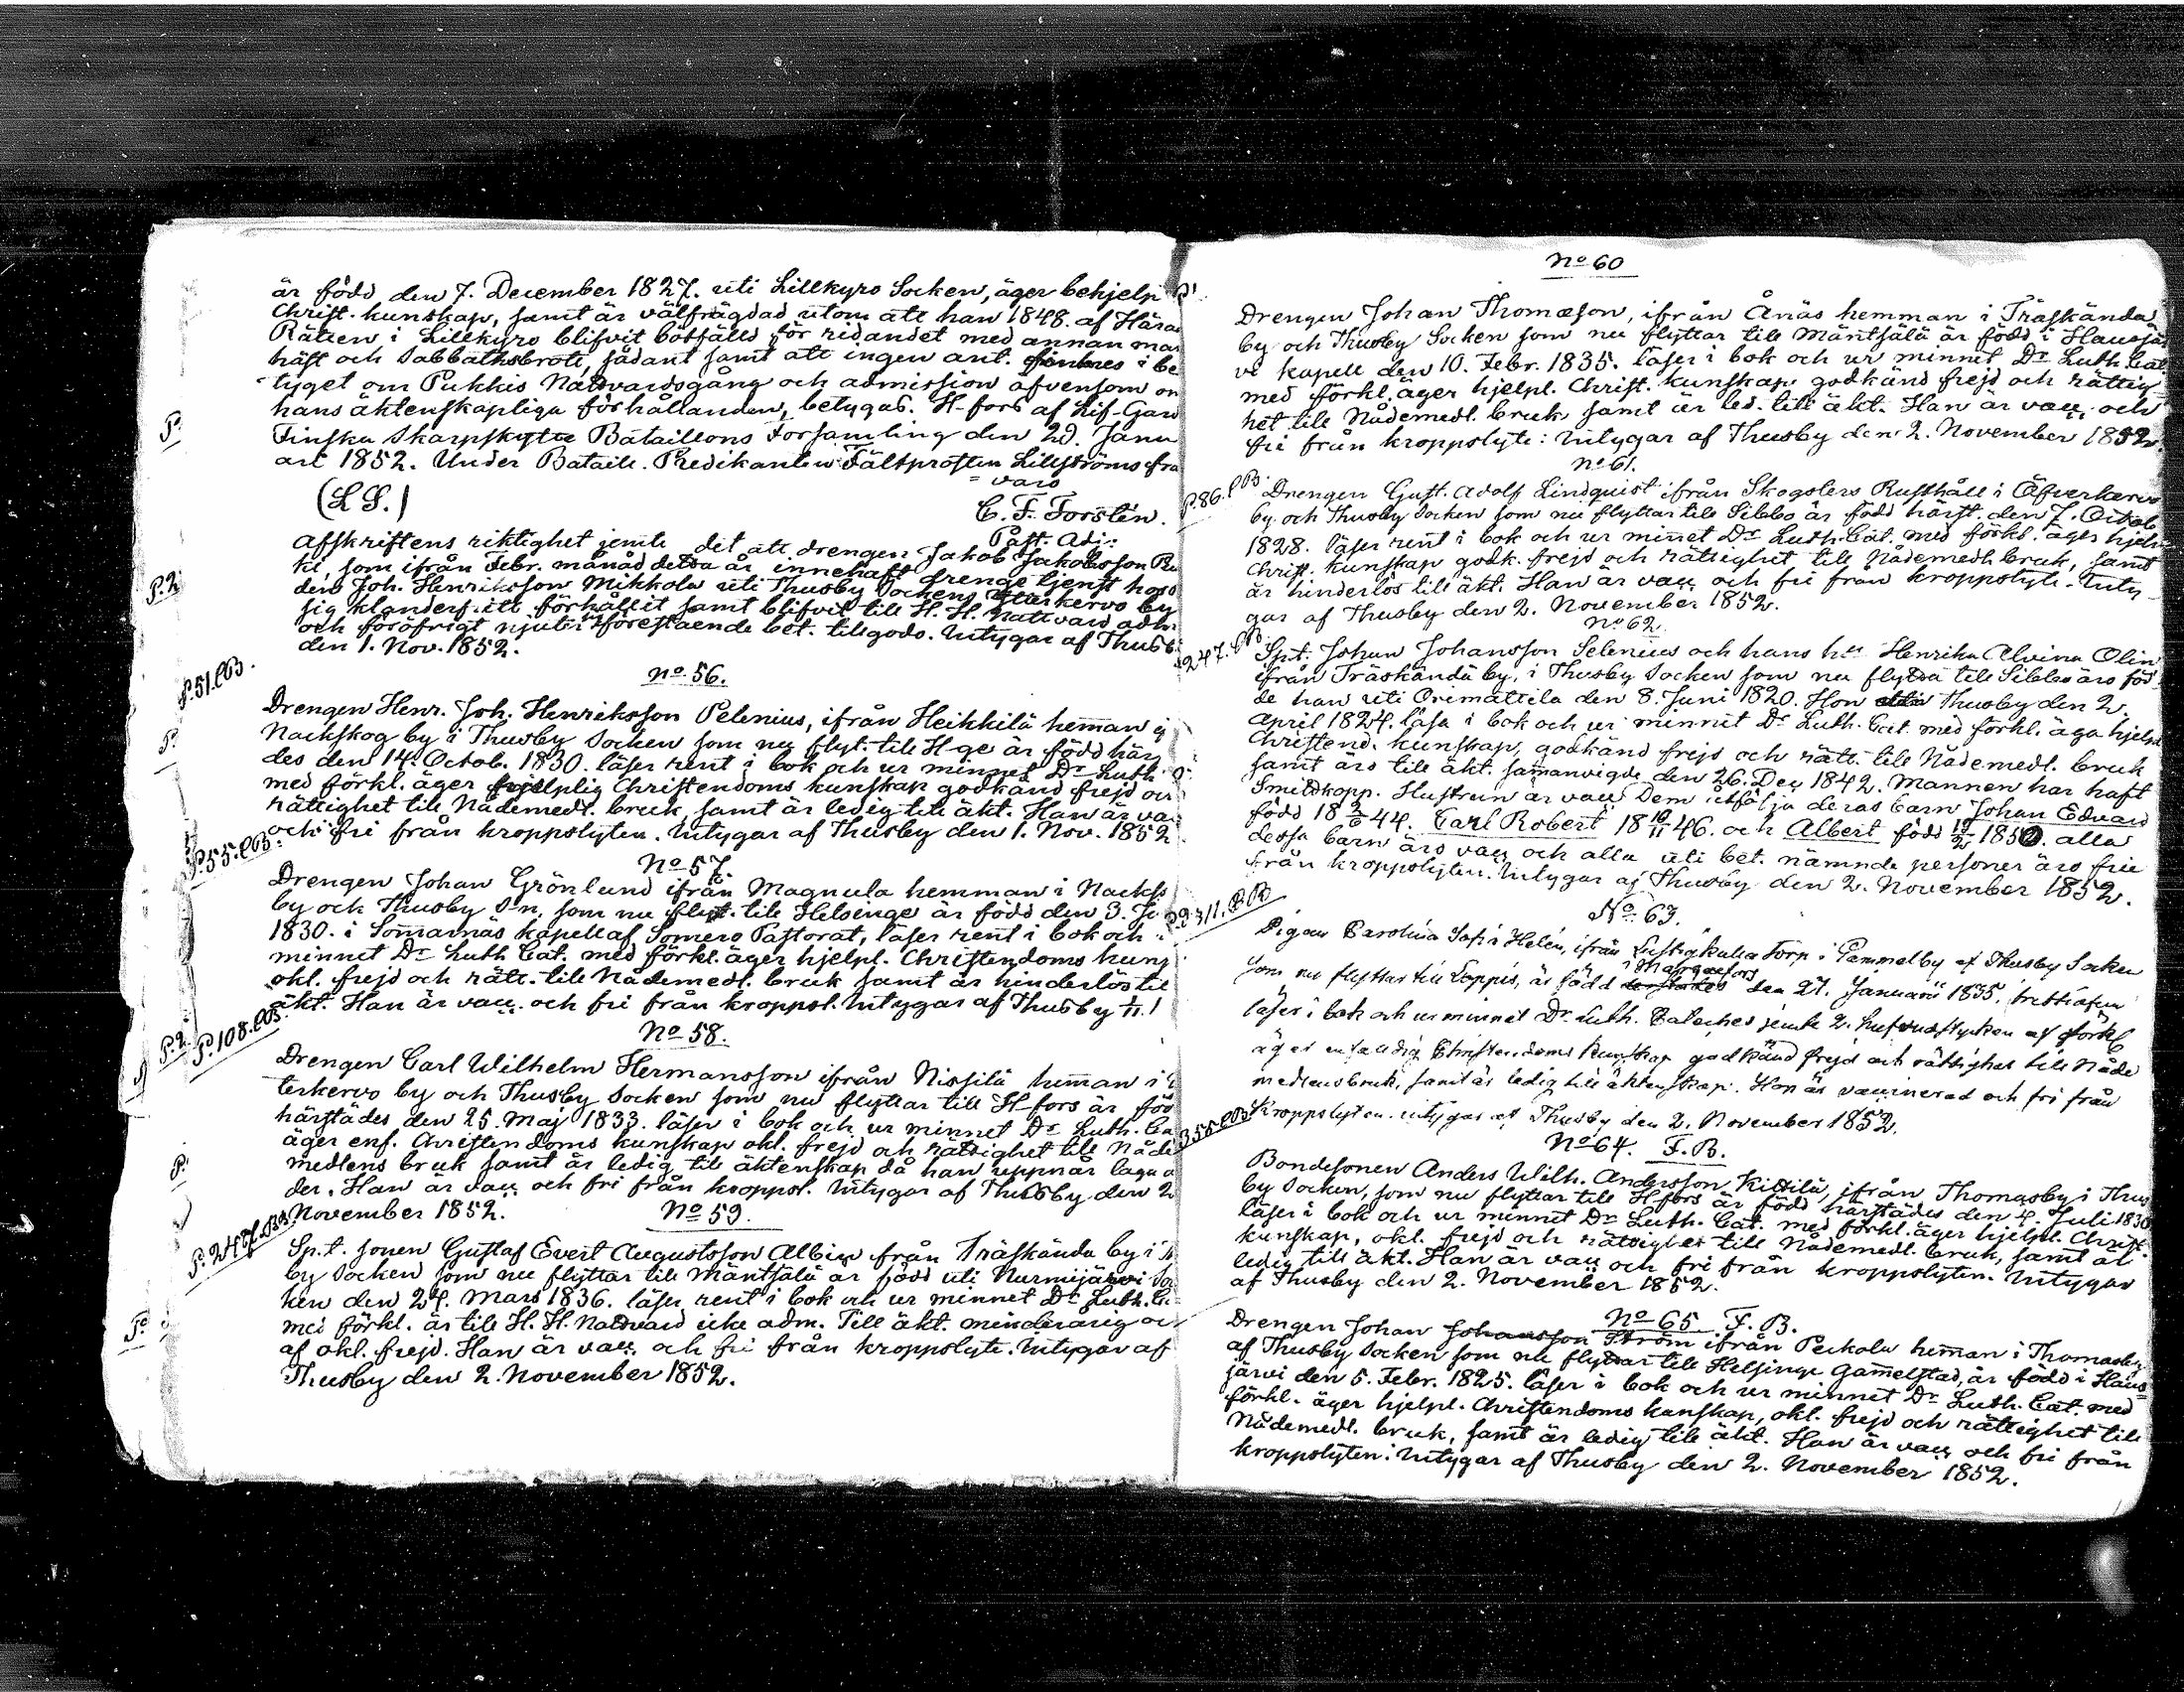 är född den 7. December 1827. uti Lillkyro Socken, äger behjelp
Christ. kunskap, samt är välfrägdad utom att han 1848. af Härads
Rätten i Lillkyro blifvit bötfälld för ridandet med annan mans
häst och Sabbathsbrott, sådant samt att ingen ant. finnes i be
tyget om Pukkis Nattvardsgång och admission äfvensom om
hans äktenskapliga förhållanden, betygas. H-fors af Lif-Gard
Finska Skarpskytte Bataillons Församling den 29. Janu
ari 1852. Under Bataill. Predikanten Fältprosten Lillströms frå
varo
(L S.) C. F. Forstén.
Past. Adj:
Afskriftens riktighet jemte det att drengen Jakob Jakobsson Pu
ki, som ifrån Febr. månad detta år innehaft drenge tjenst hos
den Joh. Henriksson Mikkola uti Thusby Sockens Ytterkervo by
sig klanderfritt förhållit samt blifvit till H. H. Nattvard adm.
och föröfrigt njuter förestående bet. tillgodo. Intygar af Thusby
den 1. Nov. 1852.
P. 51. CB.
No 56.
Drengen Henr. Joh. Henriksson Pelenius, ifrån Heikkilä hem̄an i
Nackskog by i Thusby Socken som nu flyt. till H-ge är född härstä
des den 14. Octob. 1830. läser rent i bok och ur minnet Dr Luth.
med förkl. äger hjelplig Christendoms kunskap godkänd frejd och
rättighet till Nådemedl. bruk, samt är ledig till äkt. Han är vac
och fri från kroppslyten. Intygar af Thusby den 1. Nov. 1852.
P. 55. CB.
No 57.
Drengen Johan Grönlund ifrån Magnula hemman i Nacksk
by och Thusby S-n, som nu flyt. till Helsinge är född den 3. Ju
1830. i Som̄arnäs kapell af Somero Pastorat, läser rent i bok och
minnet Dr Luth. Cat. med förkl. äger hjelpl. Christendoms kuns
okl. frejd och rätt. till Nådemedl. bruk samt är hinderlös till
äkt. Han är vacc. och fri från kroppsl. Intygar af Thusby 1/11.
P. 108. CB.
No 58.
Drengen Carl Wilhelm Hermansson ifrån Nissilä hem̄an i
terkervo by och Thusby Socken som nu flyttar till H-fors är född
härstädes den 25. Maj 1833. läser i bok och ur minnet Dr Luth. Ca
äger enf. Christendoms kunskap okl. frejd och rättighet till Nåde
medlens bruk samt är ledig till äktenskap då han uppnår laga å
der. Han är vacc. och fri från kroppsl. Intygar af Thusby den 2
November 1852.
P. 247. CB.
No 59.
Sp.t. sonen Gustaf Evert Augustsson Albin från Träskända by i
by Socken som nu flyttar till Mäntsälä är född uti Nurmijärvi So
ken den 24. Mars 1836. läser rent i bok och ur minnet Dr Luth. Ca
med förkl. är till H. H. Nattvard icke adm. Till äkt. minderårig oc
af okl. frejd. Han är vacc. och fri från kroppslyte. Intygar af
Thusby den 2. November 1852.
No 60
Drengen Johan Thomasson, ifrån Ånäs hemman i Träskända
by och Thusby Socken som nu flyttar till Mäntsälä är född i Hausjär
vi kapell den 10. Febr. 1835. läser i bok och ur minnet Dr Luth. Cat
med förkl. äger hjelpl. Christ. kunskap godkänd frejd och rättig
het till Nådemedl. bruk samt är led. till äkt. Han är vacc. och
fri från kroppslyte: Intygar af Thusby den 2. November 1852.
P. 86. CB.
No 61.
Drengen Gust. Adolf Lindquist ifrån Skogsters Rusthåll i Äfverkervo
by och Thusby Socken som nu flyttar till Sibbo är född härst. den 7. Octob
1828. läser rent i bok och ur minnet Dr Luth. Cat. med förkl. äger hjelp
Christ. kunskap godk. frejd och rättighet till Nådemedl. bruk, samt
är hinderlös till äkt. Han är vacc. och fri från kroppslyte. Inty-
gar af Thusby den 2. November 1852.
247. CB.
No 62.
Sp.t. Johan Johansson Selenius och hans hu Henrika Alvina Olin
ifrån Träskända by, i Thusby Socken som nu flytta till Sibbo äro föd
de han uti Orimattila den 8. Juni 1820. Hon Thusby den 2.
April 1824. läsa i bok och ur minnet Dr Luth. Cat. med förkl. äga hjelpl
Christend. kunskap, godkänd frejd och rätt. till Nådemedl. bruk
samt äro till äkt. samanvigde den 26. Dec 1842. Mannen har haft
Smittkopp. Hustrun är vacc. Dem åtfölja deras barn Johan Edvard
född 18 2/6 44. Carl Robert 18 10/11 46. och Albert född 12/2 1850. alla
dessa barn äro vacc. och alla uti bet. nämnde personer äro frie
från kroppslyten. Intygar af Thusby den 2. November 1852.
P. 311. CB
No 63.
Pigan Carolina Sofia Helén, ifrån Lustigkulla torp i Gammelby af Thusby Socken
Mariæfors
som nu flyttar till Loppis, är född härstädes den 27. Januarii 1835,
läser i bok och ur minnet Dr Luth. Cateches jemte 2. hufvudstycken af förkl
äger enfaldig Christendoms kunskap godkänd frejd och rättighet till Nåde
medlens bruk, samt är ledig till äktenskap. Hon är vaccinerad och fri från
Kroppslyten. intygar af Thusby den 2. November 1852.
355. CB.
No 64. F. B.
Bondesonen Anders Wilh. Andersson Kittilä, ifrån Thomasby i Thus
by Socken, som nu flyttar till H-fors är född härstädes den 4. Juli 1830
läser i bok och ur minnet Dr Luth. Cat. med förkl. äger hjelpl. Christ.
kunskap, okl. frejd och rättighet till Nådemedl. bruk, samt är
ledig till äkt. Han är vacc och fri från kroppslyten. Intygar
af Thusby den 2. November 1852.
No 65 F. B.
Drengen Johan Johansson Ström ifrån Peckola hem̄an i Thomasby
af Thusby Socken som nu flyttar till Helsinge Gam̄elstad, är född i Haus-
järvi den 5. Febr. 1825. läser i bok och ur minnet Dr Luth. Cat. med
förkl. äger hjelpl. Christendoms kunskap, okl. frejd och rättighet till
Nådemedl. bruk, samt är ledig till äkt. Han är vacc och fri från
kroppslyten: Intygar af Thusby den 2. November 1852.